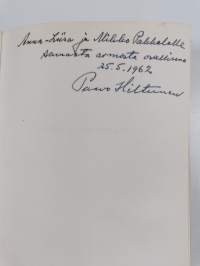 Anna-Liisa ja Mikko Pakkalalle
samasta armosta osallisina
25.5.1962
Paavo Hiltunen